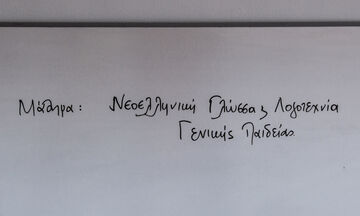 Μάθημα: Νεοελληνική Γλώσσα ς Λογοτεχνία
Γενικής Παιδείας